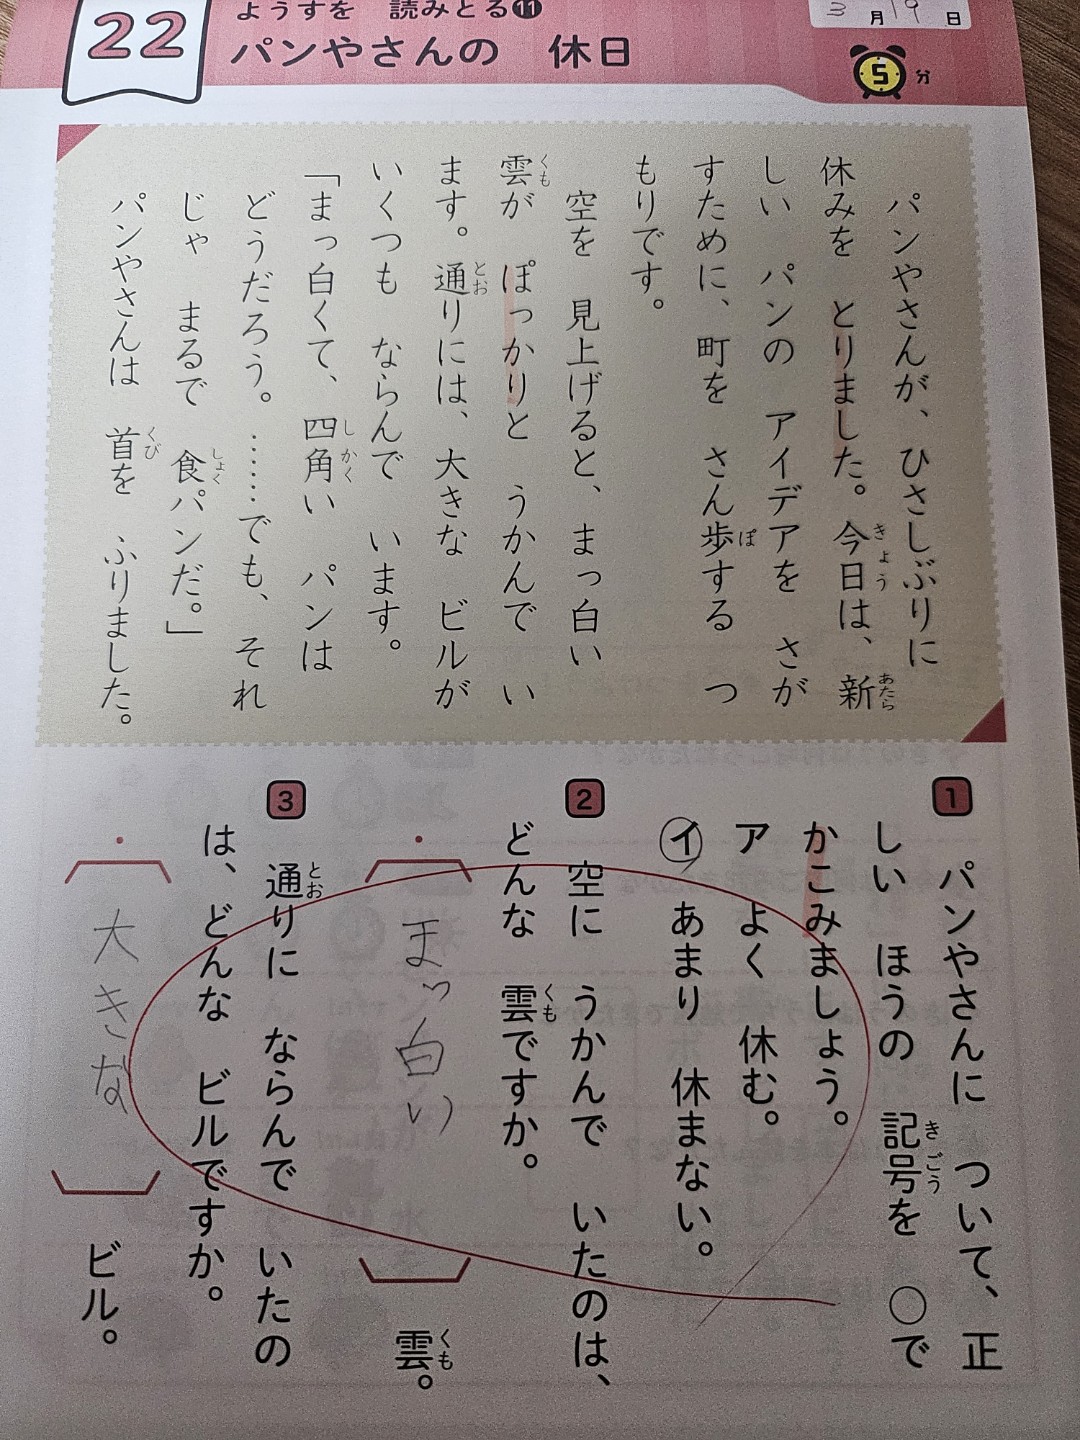 22
ようすを 読みとる⓫
パンやさんの 休日
3月19日
5分
パンやさんが、ひさしぶりに
休みを とりました。今日は、新
しい パンの アイデアを さが
すために、町を さん歩する つ
もりです。
空を 見上げると、まっ白い
雲が ぽっかりと うかんで い
ます。通りには、大きな ビルが
いくつも ならんで います。
「まっ白くて、四角い パンは
どうだろう。……でも、それ
じゃ まるで 食パンだ。」
パンやさんは 首を ふりました。
1 パンやさんに ついて、正
しい ほうの 記号を ○で
かこみましょう。
ア よく 休む。
イ あまり 休まない。
2 空に うかんで いたのは、
どんな 雲ですか。
・ まっ白い 雲。
3 通りに ならんで いたの
は、どんな ビルですか。
・ 大きな ビル。